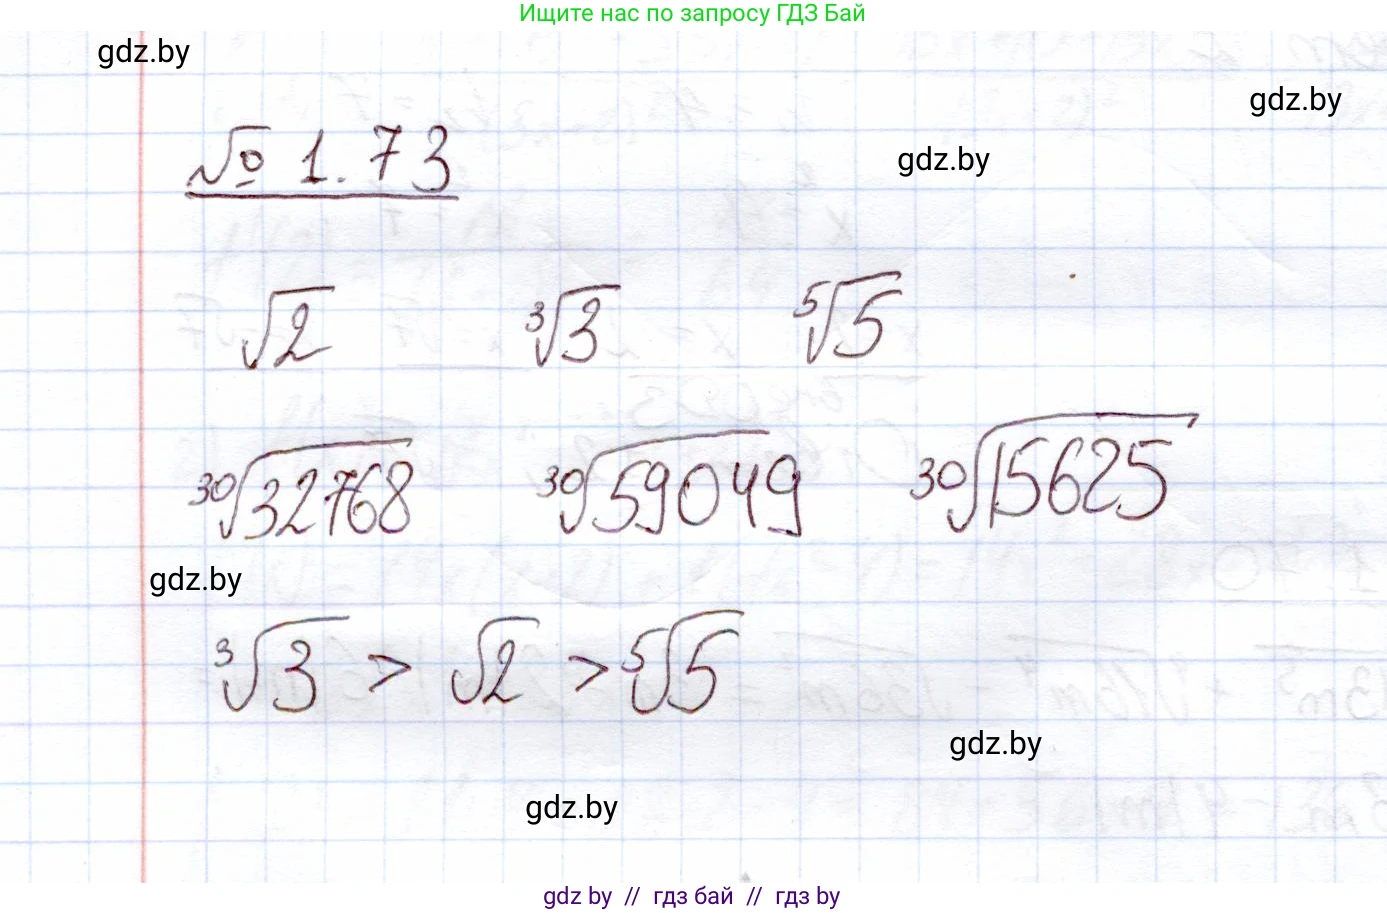 Ищите нас по запросу ГДЗ Бай
gdz.by
gdz.by
№ 1.73
gdz.by
√2 ³√3 ⁵√5
³⁰√32768 ³⁰√59049 ³⁰√15625
gdz.by
³√3 > √2 > ⁵√5
gdz.by
gdz.by
gdz by // гдз бай // гдз by